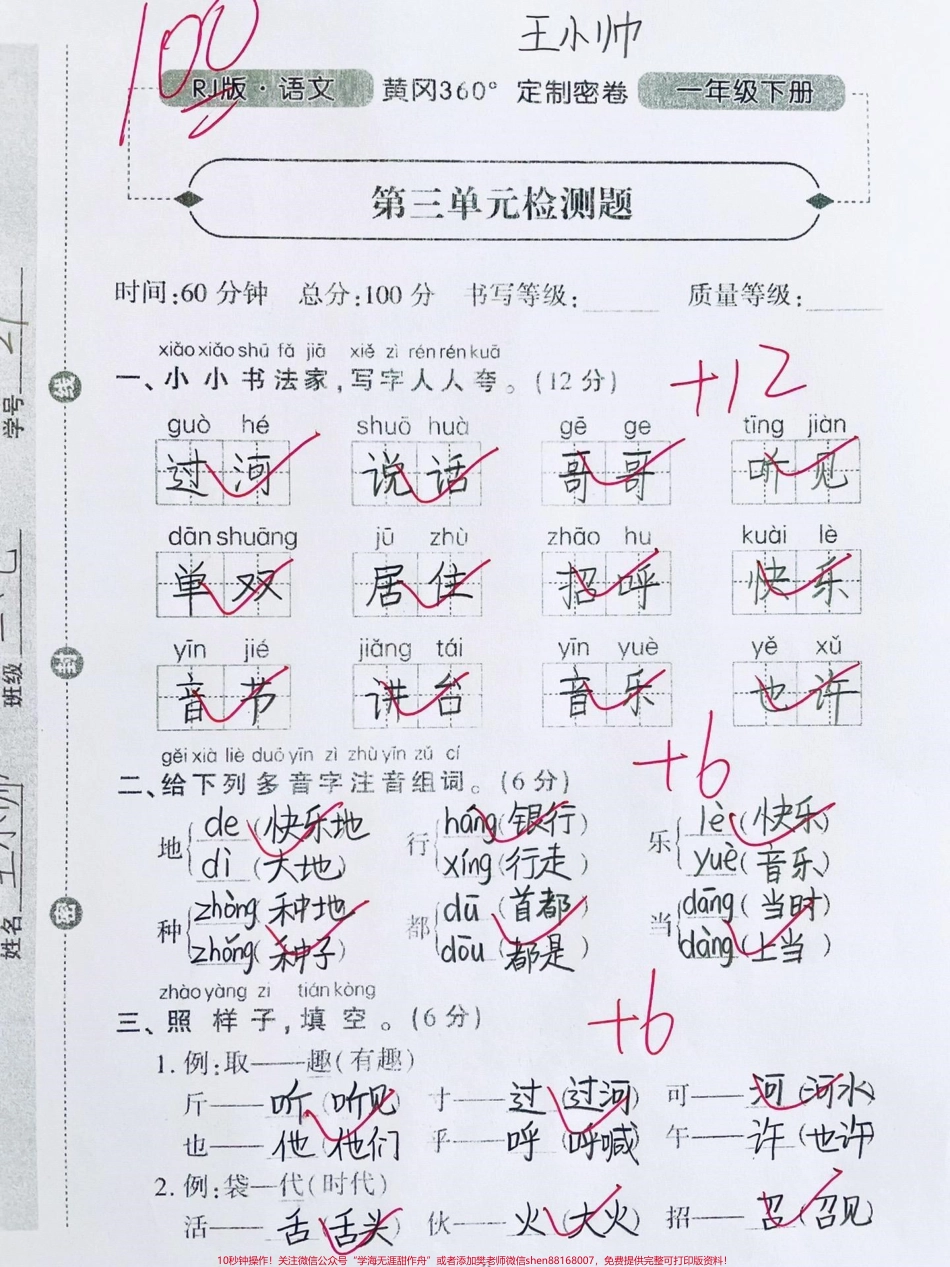 100
王小帅
RJ版·语文 黄冈360° 定制密卷 一年级下册
第三单元检测题
时间:60分钟 总分:100分 书写等级:______ 质量等级:______
xiǎo xiǎo shū fǎ jiā xiě zì rén rén kuā
一、小小书法家,写字人人夸。(12分) +12
guò hé shuō huà gē ge tīng jiàn
过河 说话 哥哥 听见
dān shuāng jū zhù zhāo hu kuài lè
单双 居住 招呼 快乐
yīn jié jiǎng tái yīn yuè yě xǔ
音节 讲台 音乐 也许
gěi xià liè duō yīn zì zhù yīn zǔ cí
二、给下列多音字注音组词。(6分) +6
地 de (快乐地) 行 háng (银行) 乐 lè (快乐)
dì (大地) xíng (行走) yuè (音乐)
种 zhòng (种地) 都 dū (首都) 当 dāng (当时)
zhǒng (种子) dōu (都是) dàng (上当)
zhào yàng zi tián kòng
三、照样子,填空。(6分) +6
1.例:取——趣(有趣)
斤——听(听见) 寸——过(过河) 可——河(河水)
也——他(他们) 乎——呼(呼喊) 午——许(也许)
2.例:袋—代(时代)
活——舌(舌头) 伙——火(大火) 招——召(召见)
学号 21
班级
姓名 王小帅
线
封
密
10秒钟操作!关注微信公众号“学海无涯甜作舟”或者添加樊老师微信shen88168007,免费提供完整可打印版资料!